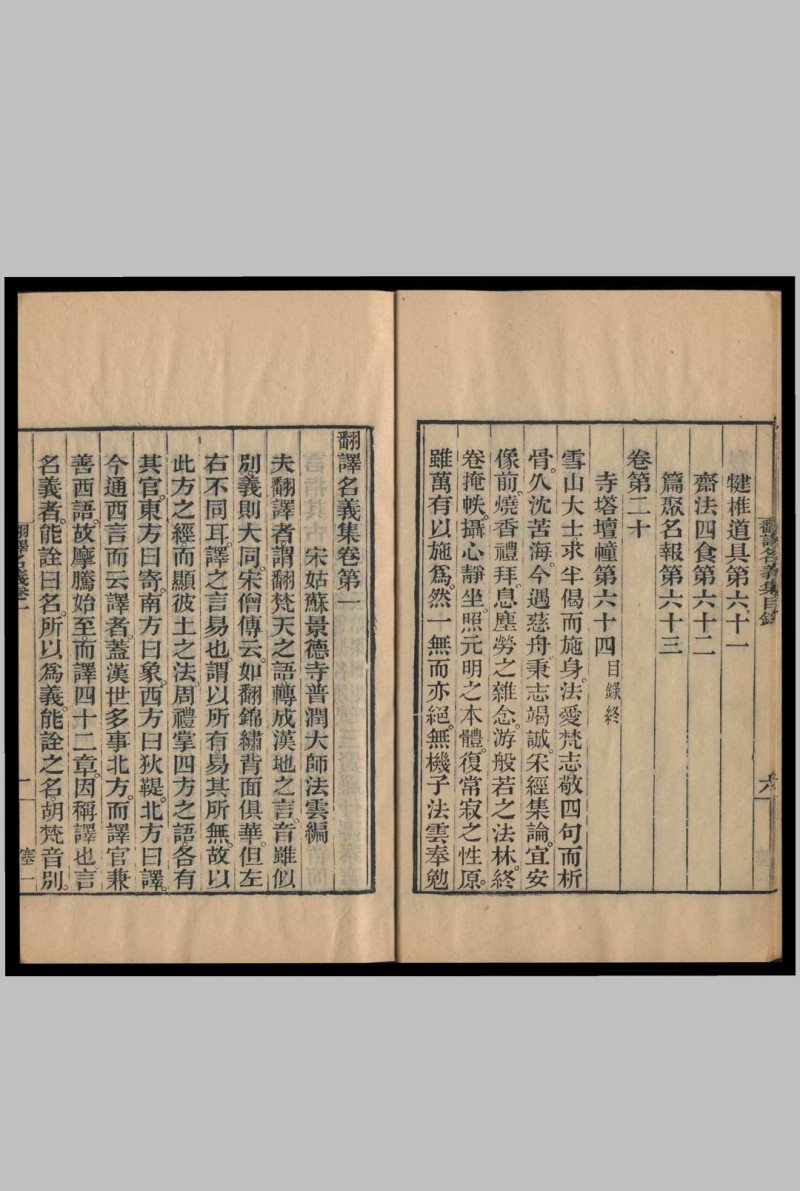 翻譯名義集目錄
六
犍椎道具第六十一
齋法四食第六十二
篇聚名報第六十三
卷第二十
寺塔壇幢第六十四目錄終
雪山大士求半偈而施身。法愛梵志敬四句而析
骨。久沈苦海。今遇慈舟。秉志竭誠。采經集論。宜安
像前。燒香禮拜。息塵勞之雜念。游般若之法林。終
卷掩帙。攝心靜坐。照元明之本體。復常寂之性原。
雖萬有以施為。然一無而亦絕。無機子法雲奉勉
翻譯名義集卷第一
宋姑蘇景德寺普潤大師法雲編
夫翻譯者。謂翻梵天之語轉成漢地之言。音雖似
別。義則大同。宋僧傳云。如翻錦繡。背面俱華。但左
右不同耳。譯之言易也。謂以所有易其所無。故以
此方之經而顯彼土之法。周禮掌四方之語。各有
其官。東方曰寄。南方曰象。西方曰狄鞮。北方曰譯。
今通西言而云譯者。蓋漢世多事北方。而譯官兼
善西語。故摩騰始至而譯四十二章。因稱譯也。言
名義者。能詮曰名。所以為義。能詮之名。胡梵音別。
翻譯名義卷一
一
塞一